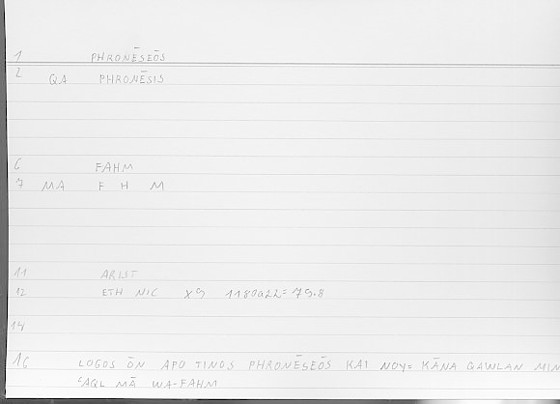 1 PHRONĒSEŌS
2 QA PHRONĒSIS
6 FAHM
7 MA F H M
11 ARIST
12 ETH NIC X9 1180a22= 79.8
14
16 LOGOS ŌN APO TINOS PHRONĒSEŌS KAI NOY= KĀNA QAWLAN MIN
ʿAQL MĀ WA-FAHM